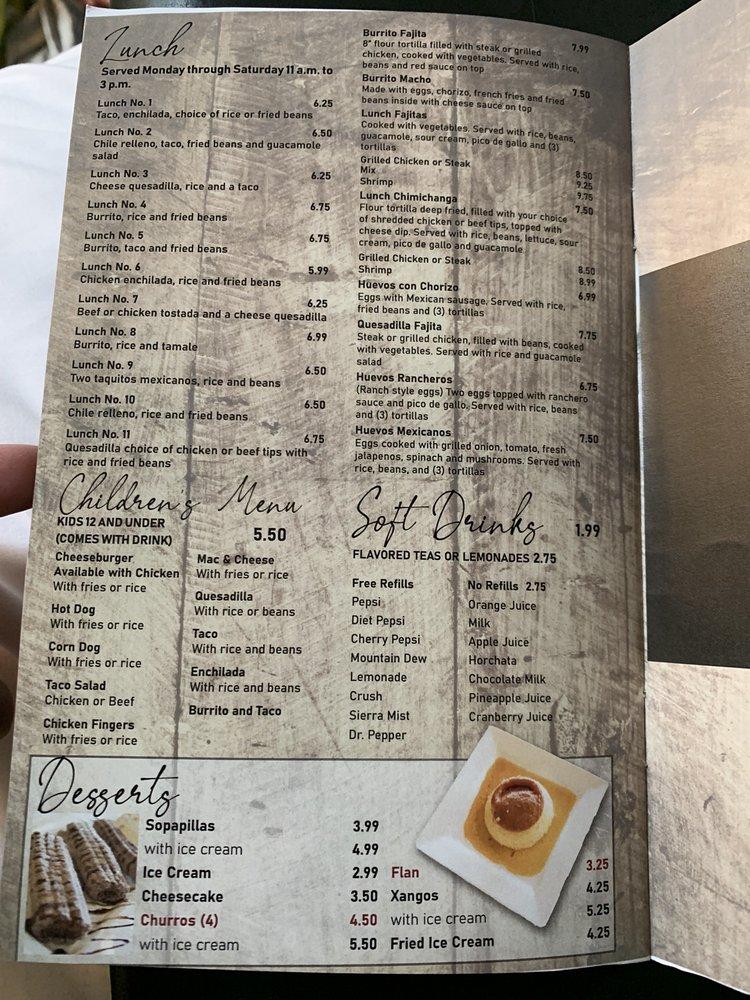 Lunch
Served Monday through Saturday 11 a.m. to
3 p.m.
Lunch No. 1 6.25
Taco, enchilada, choice of rice or fried beans
Lunch No. 2 6.50
Chile relleno, taco, fried beans and guacamole
salad
Lunch No. 3 6.25
Cheese quesadilla, rice and a taco
Lunch No. 4 6.75
Burrito, rice and fried beans
Lunch No. 5 6.75
Burrito, taco and fried beans
Lunch No. 6 5.99
Chicken enchilada, rice and fried beans
Lunch No. 7 6.25
Beef or chicken tostada and a cheese quesadilla
Lunch No. 8 6.99
Burrito, rice and tamale
Lunch No. 9 6.50
Two taquitos mexicanos, rice and beans
Lunch No. 10 6.50
Chile relleno, rice and fried beans
Lunch No. 11 6.75
Quesadilla choice of chicken or beef tips with
rice and fried beans
Burrito Fajita 7.99
8" flour tortilla filled with steak or grilled
chicken, cooked with vegetables. Served with rice,
beans and red sauce on top
Burrito Macho 7.50
Made with eggs, chorizo, french fries and fried
beans inside with cheese sauce on top
Lunch Fajitas
Cooked with vegetables. Served with rice, beans,
guacamole, sour cream, pico de gallo and (3)
tortillas
Grilled Chicken or Steak 8.50
Mix 9.25
Shrimp 9.75
Lunch Chimichanga 7.50
Flour tortilla deep fried, filled with your choice
of shredded chicken or beef tips, topped with
cheese dip. Served with rice, beans, lettuce, sour
cream, pico de gallo and guacamole
Grilled Chicken or Steak 8.50
Shrimp 8.99
Huevos con Chorizo 6.99
Eggs with Mexican sausage. Served with rice,
fried beans and (3) tortillas
Quesadilla Fajita 7.75
Steak or grilled chicken, filled with beans, cooked
with vegetables. Served with rice and guacamole
salad
Huevos Rancheros 6.75
(Ranch style eggs) Two eggs topped with ranchero
sauce and pico de gallo. Served with rice, beans
and (3) tortillas
Huevos Mexicanos 7.50
Eggs cooked with grilled onion, tomato, fresh
jalapenos, spinach and mushrooms. Served with
rice, beans, and (3) tortillas
Children's Menu
KIDS 12 AND UNDER
(COMES WITH DRINK) 5.50
Cheeseburger
Available with Chicken
With fries or rice
Hot Dog
With fries or rice
Corn Dog
With fries or rice
Taco Salad
Chicken or Beef
Chicken Fingers
With fries or rice
Mac & Cheese
With fries or rice
Quesadilla
With rice or beans
Taco
With rice and beans
Enchilada
With rice and beans
Burrito and Taco
Soft Drinks 1.99
FLAVORED TEAS OR LEMONADES 2.75
Free Refills
Pepsi
Diet Pepsi
Cherry Pepsi
Mountain Dew
Lemonade
Crush
Sierra Mist
Dr. Pepper
No Refills 2.75
Orange Juice
Milk
Apple Juice
Horchata
Chocolate Milk
Pineapple Juice
Cranberry Juice
Desserts
Sopapillas 3.99
with ice cream 4.99
Ice Cream 2.99
Cheesecake 3.50
Churros (4) 4.50
with ice cream 5.50
Flan 3.25
Xangos 4.25
with ice cream 5.25
Fried Ice Cream 4.25